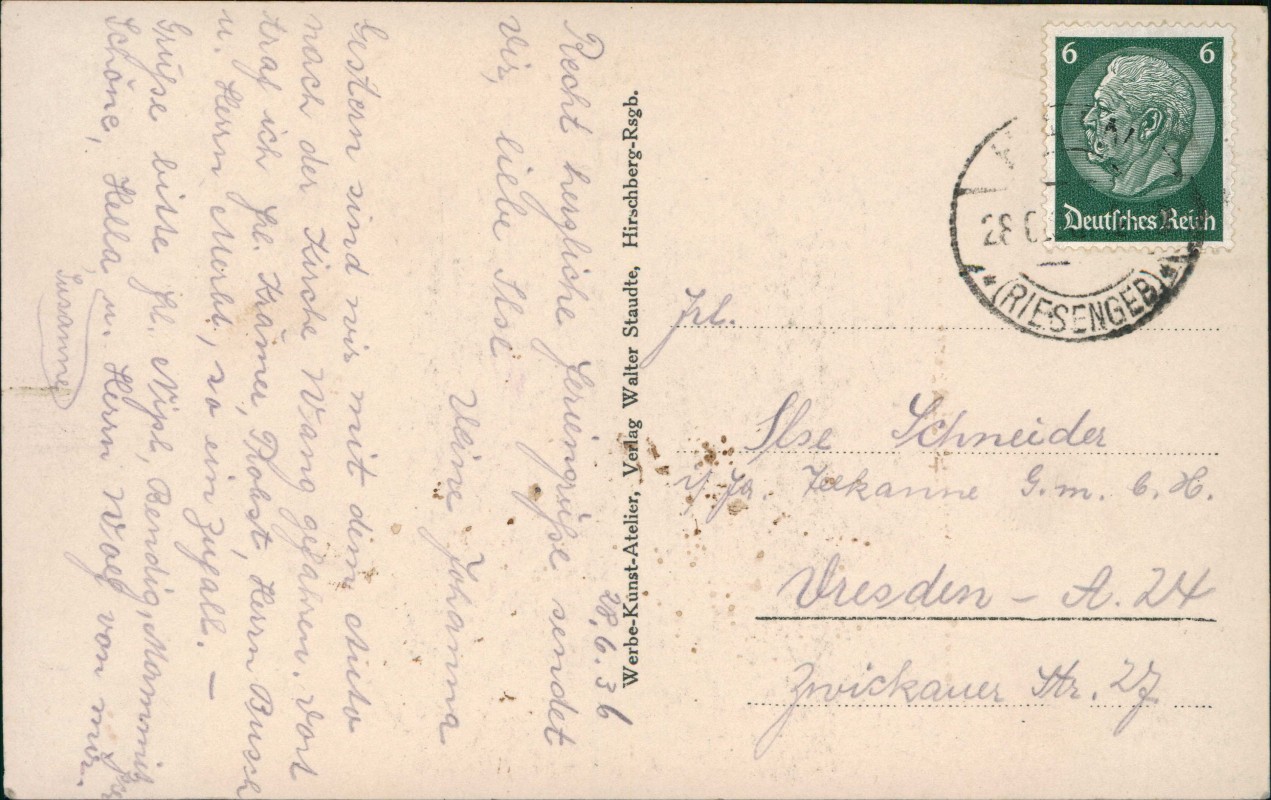 28.6.36
Recht herzliche Feriengrüße sendet
Dir, liebe Ilse
Deine Johanna
Gestern sind wir mit dem Auto
nach der Kirche Wang gefahren. Dort
traf ich Frl. Krämer, Probst, Herrn Busch
u. Herrn Morbt, so ein Zufall. —
Grüße bitte Frl. Nipl, Rendig,
Schöne, Hella u. Herrn Waeg von mir.
Susanne
Werbe-Kunst-Atelier, Verlag Walter Staudte, Hirschberg-Rsgb.
6 6
Deutsches Reich
28
(RIESENGEB)
Frl.
Ilse Schneider
Fa. Teekanne G.m.b.H.
Dresden - A. 24
Zwickauer Str. 27